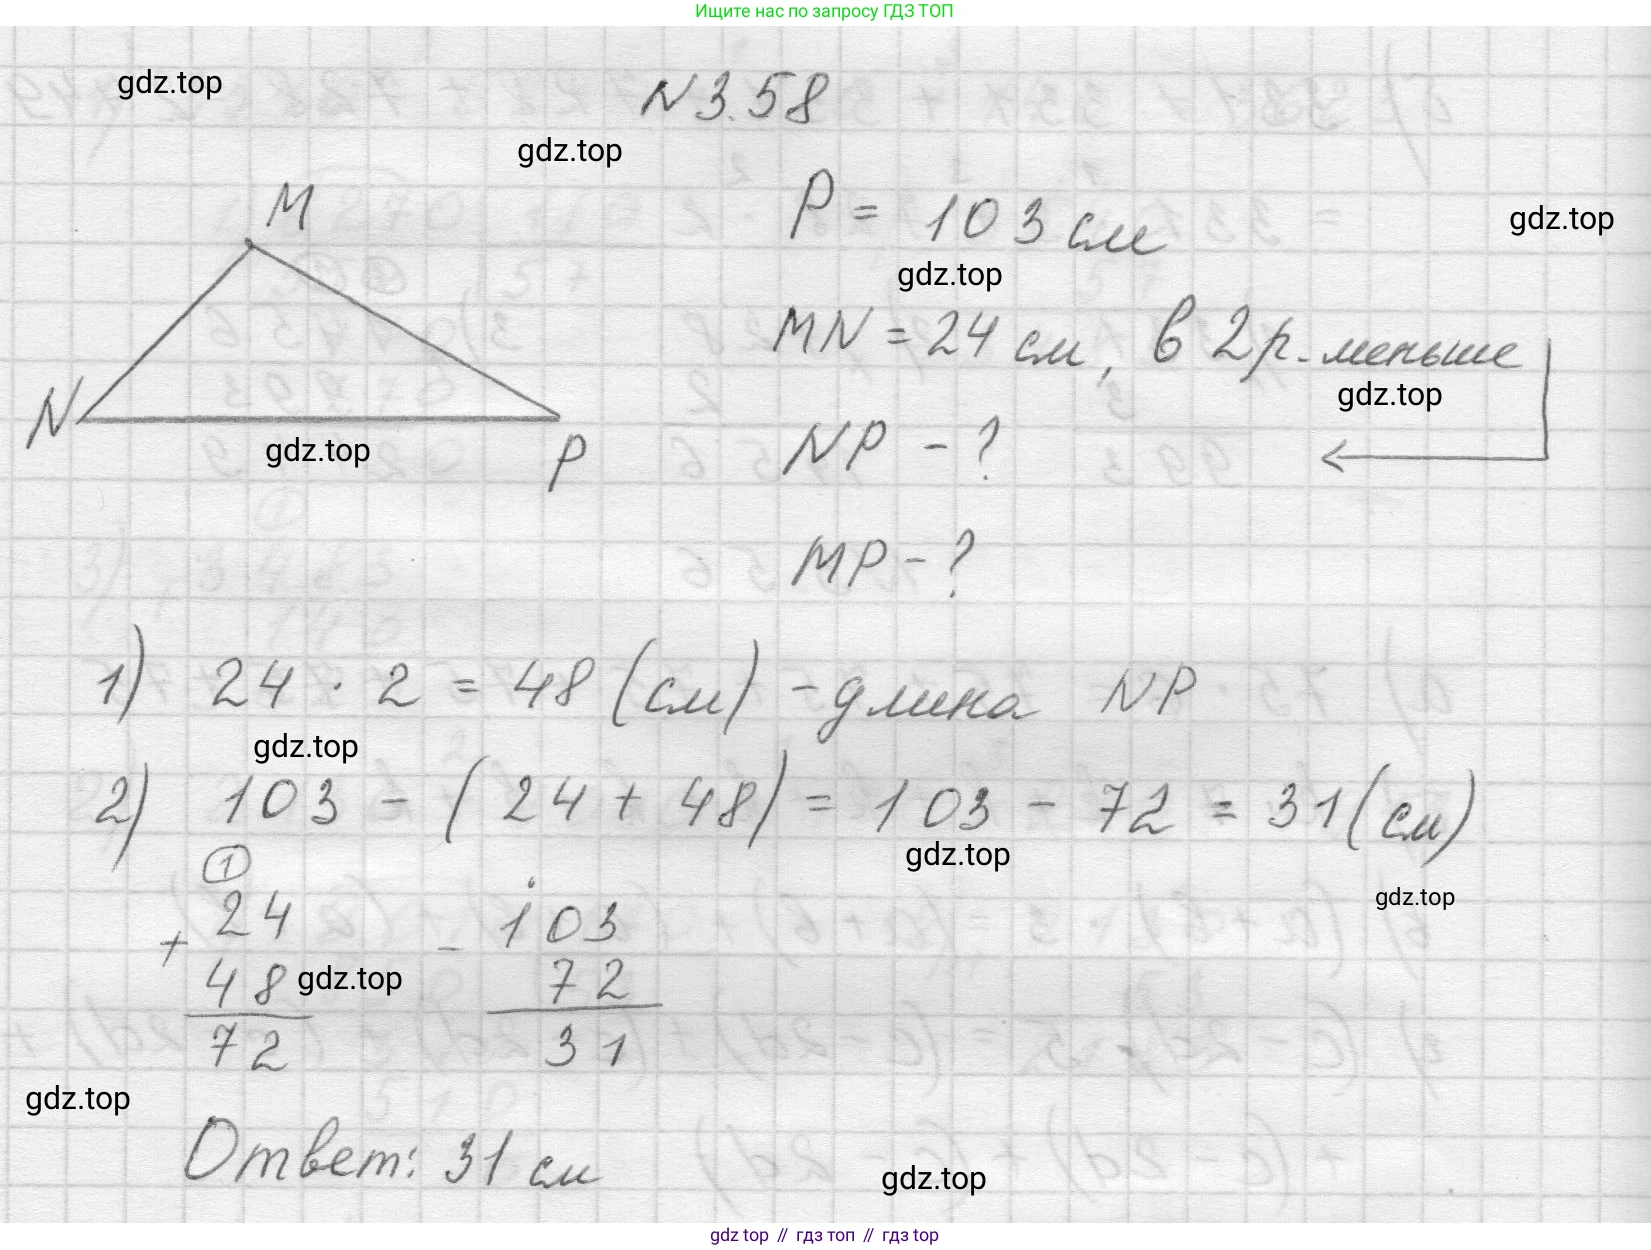 Ищите нас по запросу ГДЗ ТОП
gdz.top
N 3.58
gdz.top
M
P = 103 см
gdz.top
gdz.top
MN = 24 см, в 2 р. меньше
gdz.top
N
NP - ?
gdz.top
P
MP - ?
1) 24 · 2 = 48 (см) - длина NP
gdz.top
2) 103 - (24 + 48) = 103 - 72 = 31 (см)
gdz.top
1
gdz.top
24
103
+
-
48
72
gdz.top
72
31
gdz.top
Ответ: 31 см
gdz.top
gdz top // гдз топ // gdz top